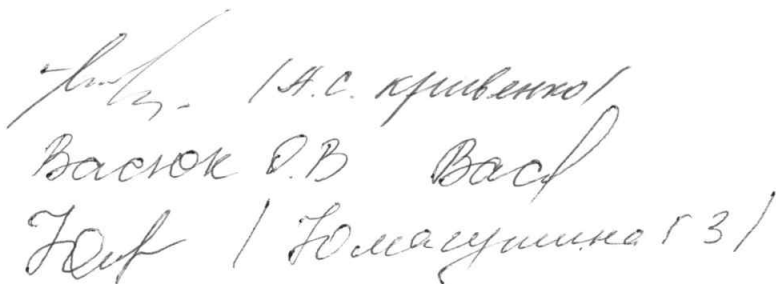 /А.С. Кривенко/
Васюк О.В Вас
/ Юмагушина Г З /